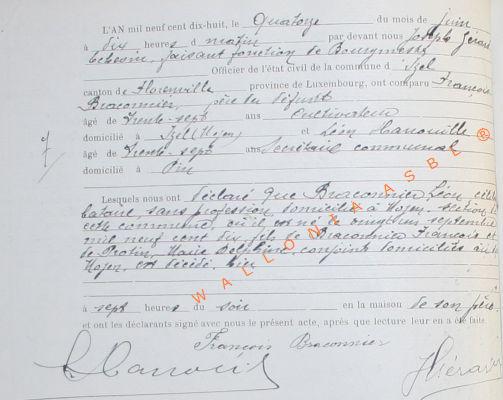 L'AN mil neuf cent dix-huit, le Quatorze du mois de Juin
à dix heures d u matin par devant nous Joseph Gérard
Echesin, faisant fonction de Bourgmestre
Officier de l'état civil de la commune d' Izel
canton de Florenville province de Luxembourg, ont comparu François
Braconnier, père du défunt
âgé de Trente-sept ans Cultivateur
domicilié à Izel (Moyen) et Léon Hanouille
âgé de Trente-sept ans Secrétaire communal
domicilié à Pin
Lesquels nous ont déclaré que Braconnier Léon céli
bataire, sans profession, domicilié à Moyen, section de
cette commune, où il est né le septembre
mil neuf cent dix fils de Braconnier François et
de Protin, Marie Delphine, conjoints domiciliés audit
Moyen, est décédé hier
à sept heures du soir en la maison de son père
et ont les déclarants signé avec nous le présent acte, après que lecture leur en a été faite.
François Braconnier
L Hanouil
JGérard
WALLONIA ASBL ®